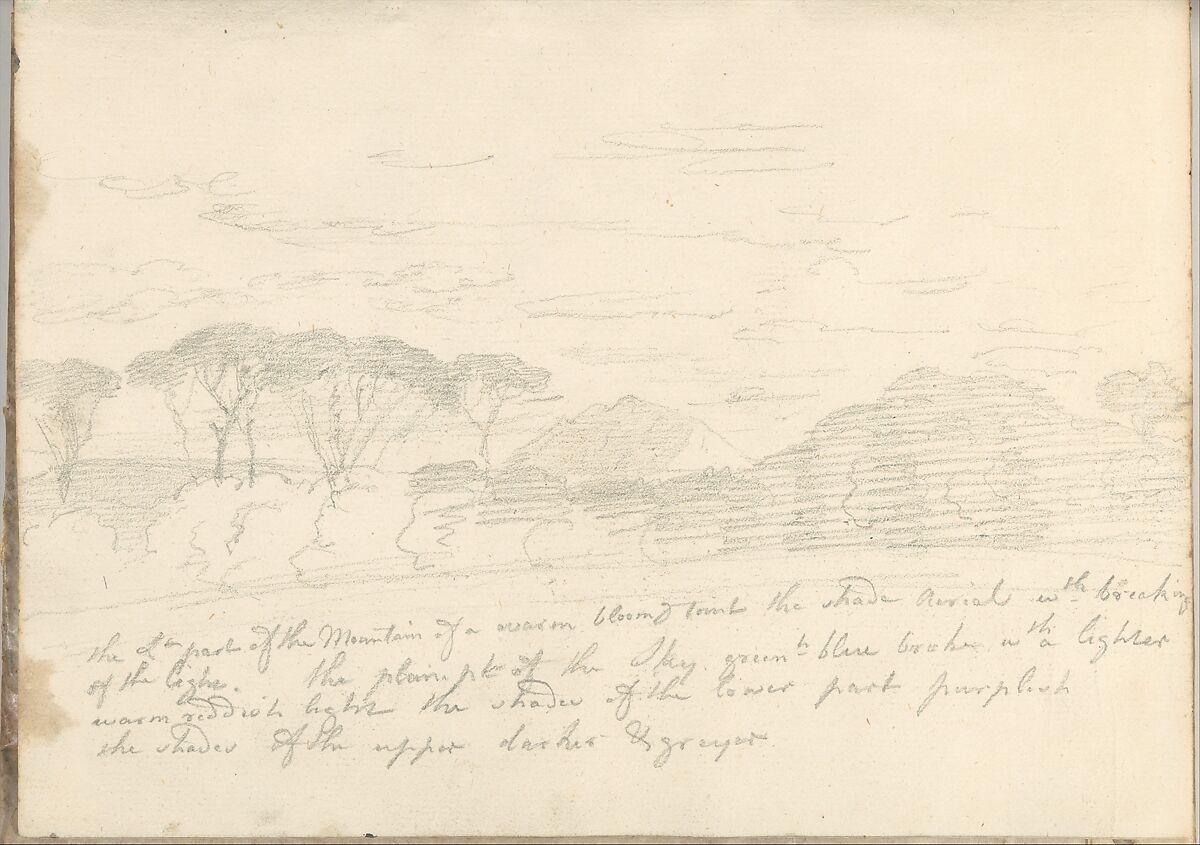 the part of the Mountain of a warm bloomy the shade Aerial wth breaking
of the light. the plain pt of the Sky green blue broke wth a lighter
warm reddish light the shades of the lower part purplish
the shades of the upper darker & greyer